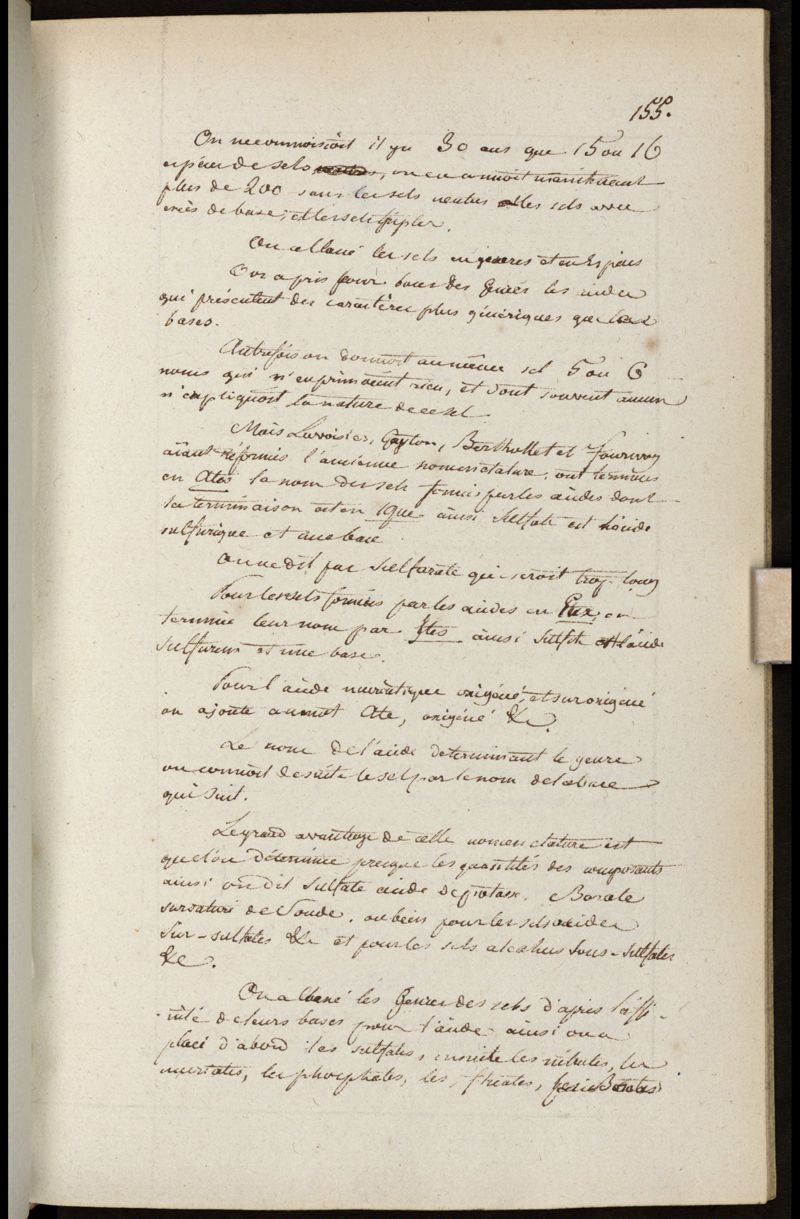 155.
On ne connoissoit il y a 30 ans que 15 ou 16
espèces de sels, on en connoit maintenant
plus de 200 sans les sels neutres les sels avec
excès de base, et les sels triples.
On a classé les sels en genres et en Espèces
On a pris pour bases des Genres les acides
qui présentent des caractères plus génériques que les
bases.
Autrefois on donnoit au même sel 5 ou 6
noms qui n'exprimoient rien, et dont souvent aucun
n'expliquoit la nature de ce sel.
Mais Lavoisier, Guyton, Berthollet et Fourcroy
aiant réformé l'ancienne nomenclature, ont terminés
en Ates le nom des sels formés par les acides dont
la terminaison est en ique ainsi Sulfate est l'acide
sulfurique et une base
on ne dit pas Sulfurate qui seroit trop long
Pour les sels formés par les acides en Eux, on
termine leur nom par Ites ainsi Sulfite est l'acide
sulfureux et une base.
Pour l'acide muriatique oxigéné, et suroxigéné
on ajoute au mot Ate, oxigéné &c.
Le nom de l'acide déterminant le genre
on connoit de suite le sel par le nom de la base
qui suit.
Le grand avantage de cette nomenclature est
que l'on détermine presque les quantités des composants
ainsi on dit Sulfate acide de potasse. Borate
sursaturé de Soude, ou bien pour les sels acides
Sur-sulfates &c et pour les sels alcalins Sous-Sulfates
&c.
On a classé les Genres des sels d'après l'affi-
nité de leurs bases pour l'acide ainsi on a
placé d'abord les sulfates, ensuite les nitrates, les
muriates, les phosphates, les fluates, les Borates